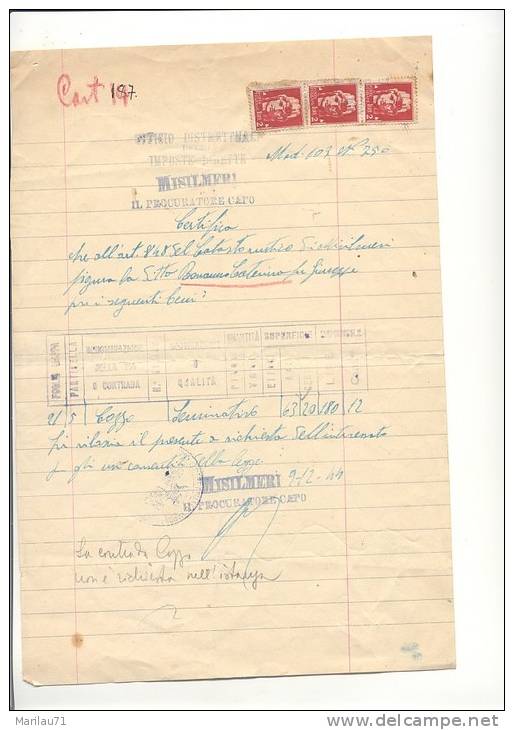 Cart 14
197.
UFFICIO DISTRETTUALE
IMPOSTE DIRETTE
MISILMERI
IL PROCURATORE CAPO
Mod. 103 N° 750
Certifica
che all'art. 848 del Catasto rustico di Misilmeri
figura la Ditta Bonanno Caterina fu Giuseppe
per i seguenti beni:
FOGLIO MAPPA
PARTICELLA
DENOMINAZIONE DELLA VIA O CONTRADA
O QUALITÀ
SUPERFICIE
21 5 Cozzo Seminativo 63 20 180 12
Si rilascia il presente a richiesta dell'interessato
gli usi consentiti dalla legge.
MISILMERI 9-12-44
IL PROCURATORE CAPO
La contrada Cozzo
non è richiesta nell'istanza
Marilau71
www.delcampe.net